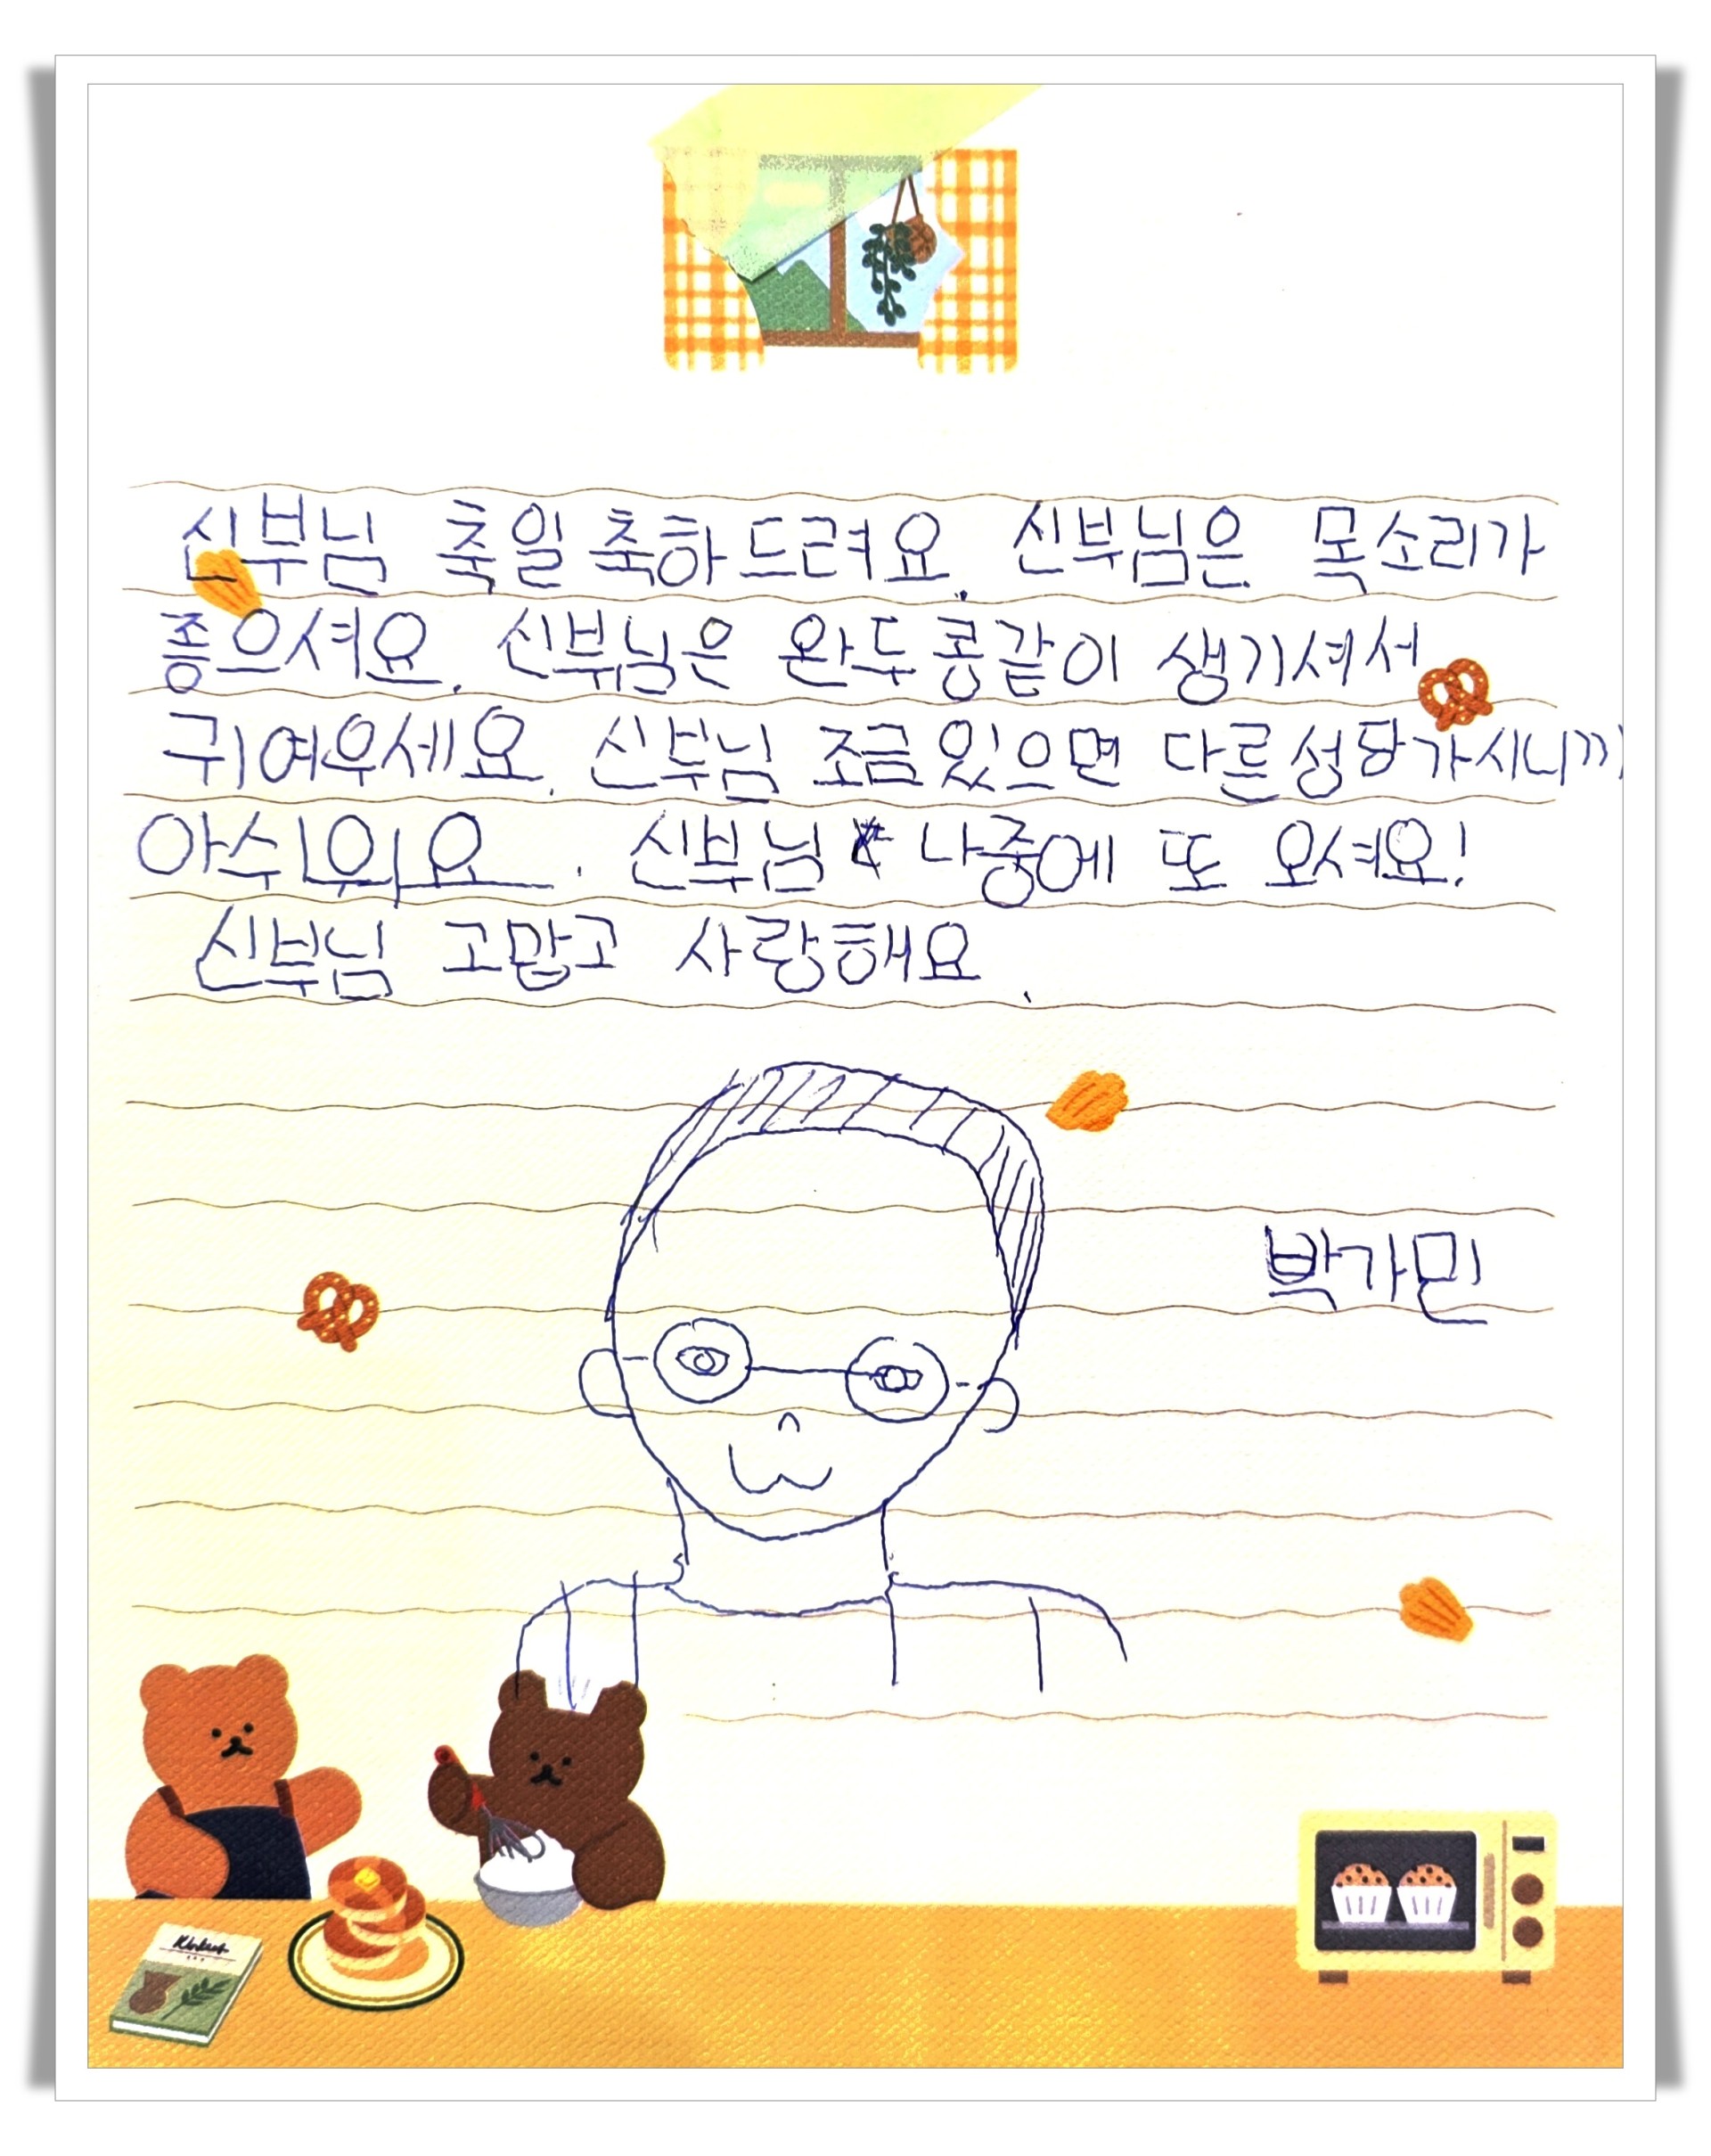 신부님 축일 축하 드려요. 신부님은 목소리가
좋으셔요. 신부님은 완두콩같이 생기셔서
귀여우세요. 신부님 조금 있으면 다른 성당 가시니까
아쉬워요. 신부님 나중에 또 오셔요!
신부님 고맙고 사랑해요.
박가민